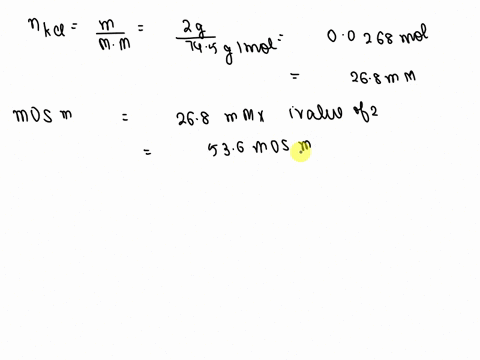 n kcl = m / M.M = 2g / 74.5 g/mol = 0.0268 mol
= 26.8 mM
mOS m = 26.8 mM x i value of 2
= 53.6 mOS m